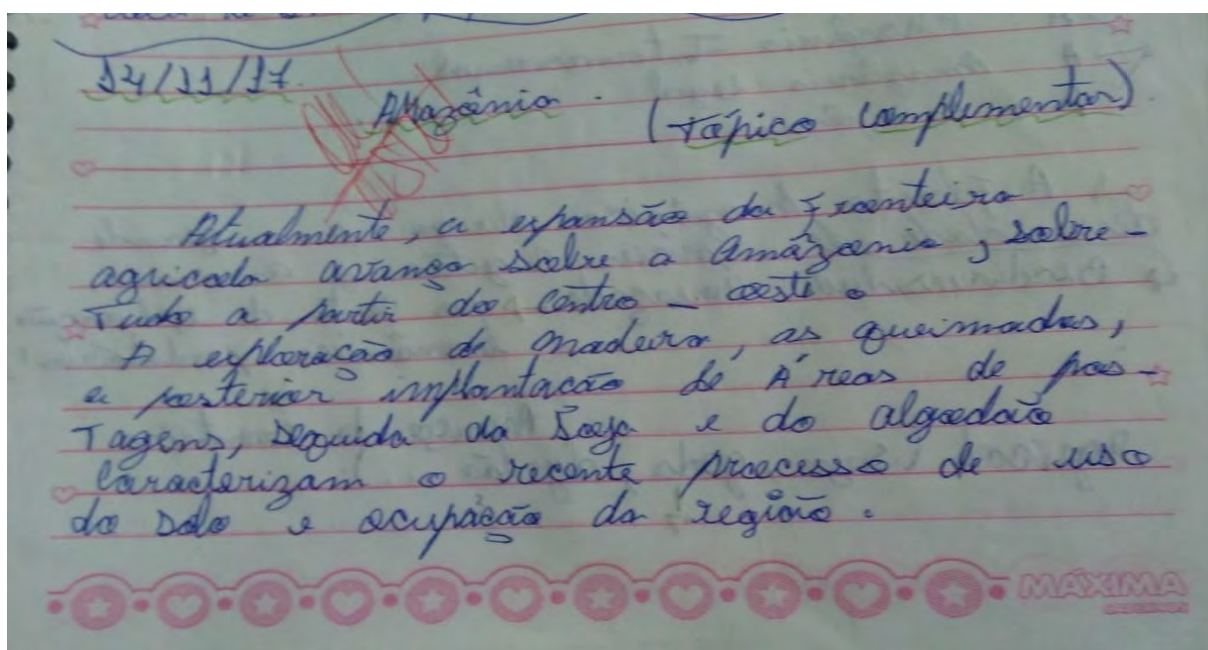 14/11/17.
Amazônia. (Tópico complementar).
Atualmente, a expansão da fronteira
agricola avança sobre a Amazonia, sobre-
Tudo a partir do centro-oeste.
A exploração de madeira, as queimadas,
a posterior implantacão de Áreas de pas-
Tagens, seguida da Soja e do algodão
Caracterizam o recente processo de uso
do solo e ocupação da região.
MÁXIMA